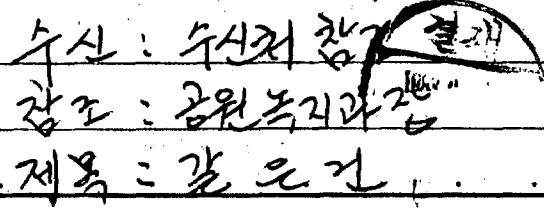 수신 : 수신처 참조 결재
참조 : 공원녹지과장
제목 : 같은 건